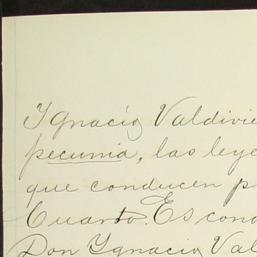 Ygnacio Valdivie
pecunia, las leye
que conducen p
Cuarto. Es cond
Don Ygnacio Val